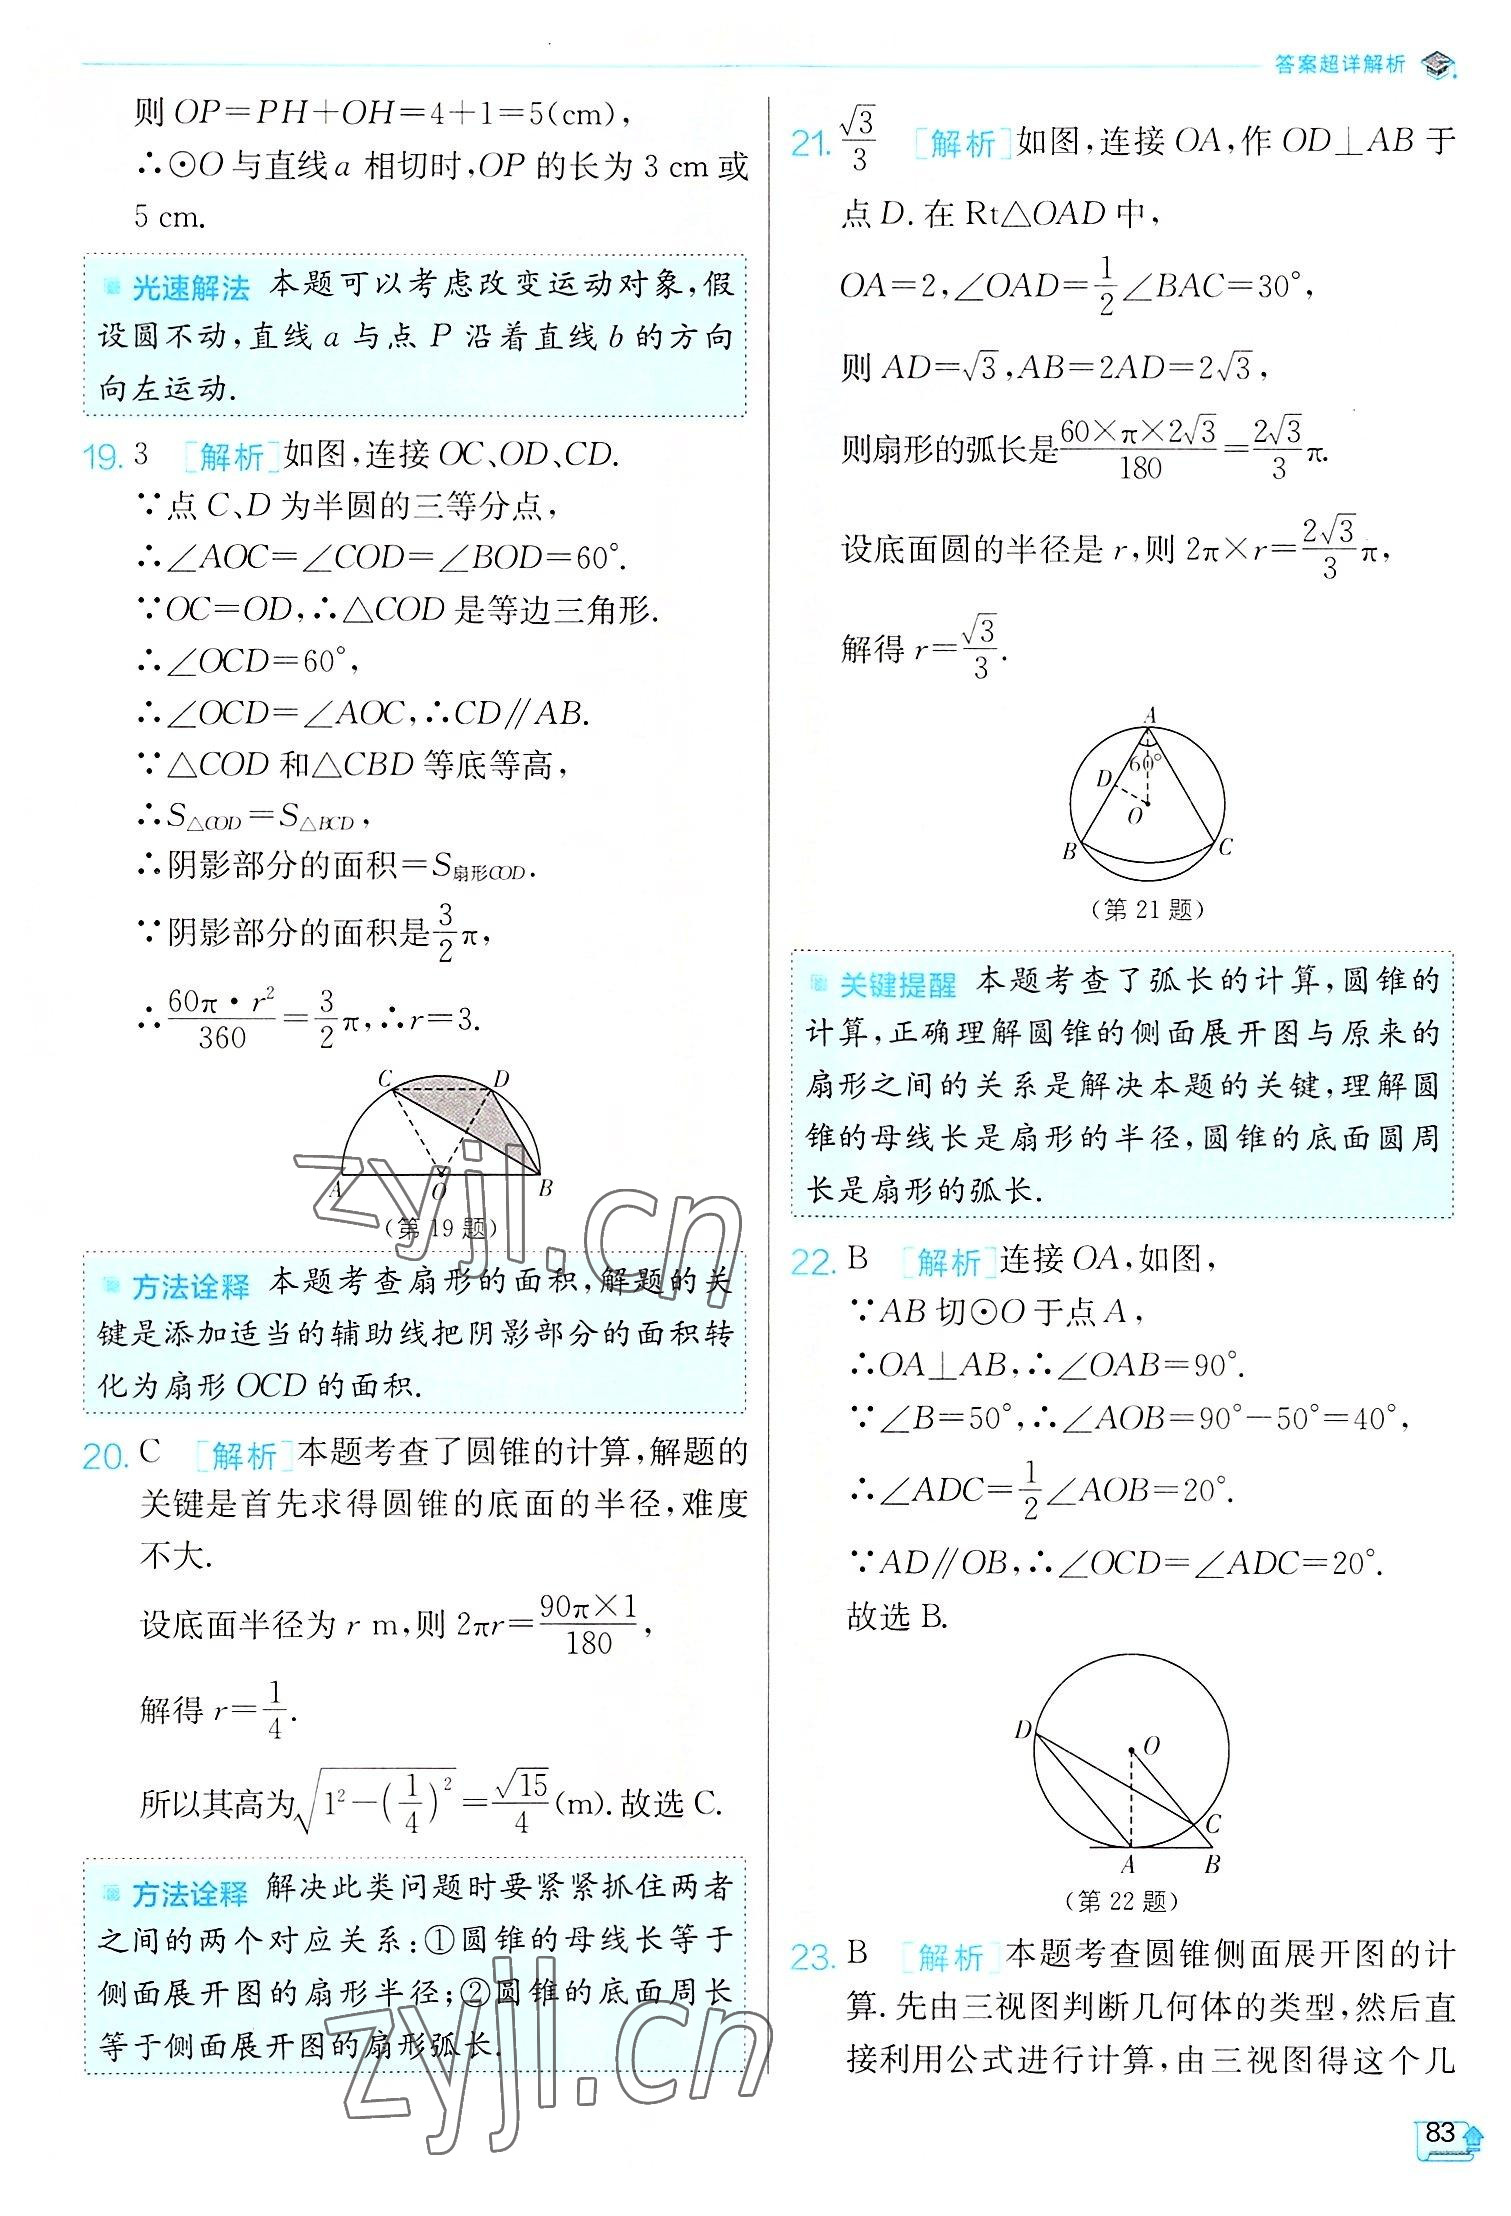 答案超详解析
则 OP=PH+OH=4+1=5(cm),
∴⊙O 与直线 a 相切时,OP 的长为 3 cm 或
5 cm.
光速解法 本题可以考虑改变运动对象,假
设圆不动,直线 a 与点 P 沿着直线 b 的方向
向左运动.
19. 3 [解析]如图,连接 OC、OD、CD.
∵点 C、D 为半圆的三等分点,
∴∠AOC=∠COD=∠BOD=60°.
∵OC=OD,∴△COD 是等边三角形.
∴∠OCD=60°,
∴∠OCD=∠AOC,∴CD∥AB.
∵△COD 和△CBD 等底等高,
∴S△COD=S△BCD,
∴阴影部分的面积=S扇形COD.
∵阴影部分的面积是3/2π,
∴60π·r²/360=3/2π,∴r=3.
C D
A O B
(第 19 题)
方法诠释 本题考查扇形的面积,解题的关
键是添加适当的辅助线把阴影部分的面积转
化为扇形 OCD 的面积.
20. C [解析]本题考查了圆锥的计算,解题的
关键是首先求得圆锥的底面的半径,难度
不大.
设底面半径为 r m,则 2πr=90π×1/180,
解得 r=1/4.
所以其高为√(1²-(1/4)²)=√15/4(m).故选 C.
方法诠释 解决此类问题时要紧紧抓住两者
之间的两个对应关系:①圆锥的母线长等于
侧面展开图的扇形半径;②圆锥的底面周长
等于侧面展开图的扇形弧长.
21. √3/3 [解析]如图,连接 OA,作 OD⊥AB 于
点 D.在 Rt△OAD 中,
OA=2,∠OAD=1/2∠BAC=30°,
则 AD=√3,AB=2AD=2√3,
则扇形的弧长是60×π×2√3/180=2√3/3π.
设底面圆的半径是 r,则 2π×r=2√3/3π,
解得 r=√3/3.
A
60°
D
O
B C
(第 21 题)
关键提醒 本题考查了弧长的计算,圆锥的
计算,正确理解圆锥的侧面展开图与原来的
扇形之间的关系是解决本题的关键,理解圆
锥的母线长是扇形的半径,圆锥的底面圆周
长是扇形的弧长.
22. B [解析]连接 OA,如图,
∵AB 切⊙O 于点 A,
∴OA⊥AB,∴∠OAB=90°.
∵∠B=50°,∴∠AOB=90°-50°=40°,
∴∠ADC=1/2∠AOB=20°.
∵AD∥OB,∴∠OCD=∠ADC=20°.
故选 B.
D
O
C
A B
(第 22 题)
23. B [解析]本题考查圆锥侧面展开图的计
算.先由三视图判断几何体的类型,然后直
接利用公式进行计算,由三视图得这个几
83
zyjl.cn
zyjl.cn